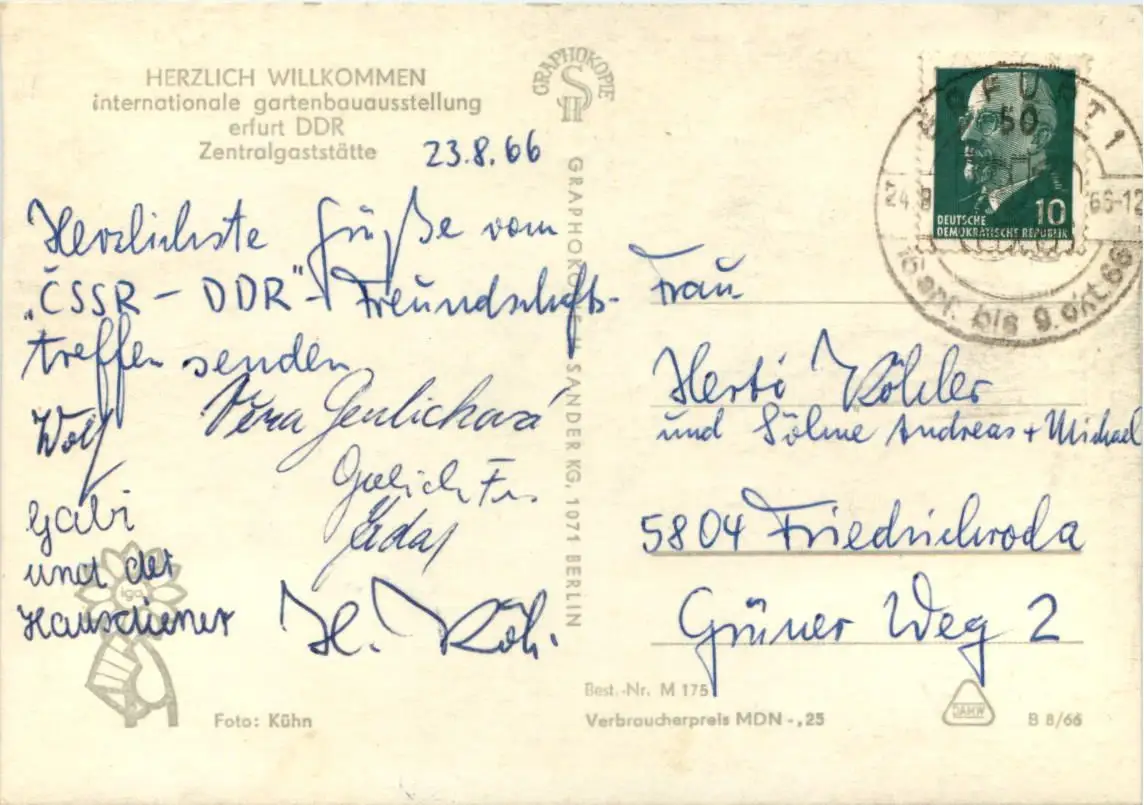 HERZLICH WILLKOMMEN
internationale gartenbauausstellung
erfurt DDR
Zentralgaststätte
23.8.66
Herzlichste Grüße vom
„ČSSR – DDR"- Freundschafts-
treffen senden
Wolf
Vera
Gabi
und der
Hausdiener
H. Köh.
iga
Foto: Kühn
GRAPHOKOPIE
GRAPHOKOPIE H SANDER KG, 1071 BERLIN
ERFURT 1
50
24.8 66-12
bis 9. okt. 66
10
DEUTSCHE
DEMOKRATISCHE REPUBLIK
Frau
Köhler
und Söhne Andreas + Michael
5804 Friedrichroda
Grüner Weg 2
Best.-Nr. M 175
Verbraucherpreis MDN -,25
DAMW
B 8/66